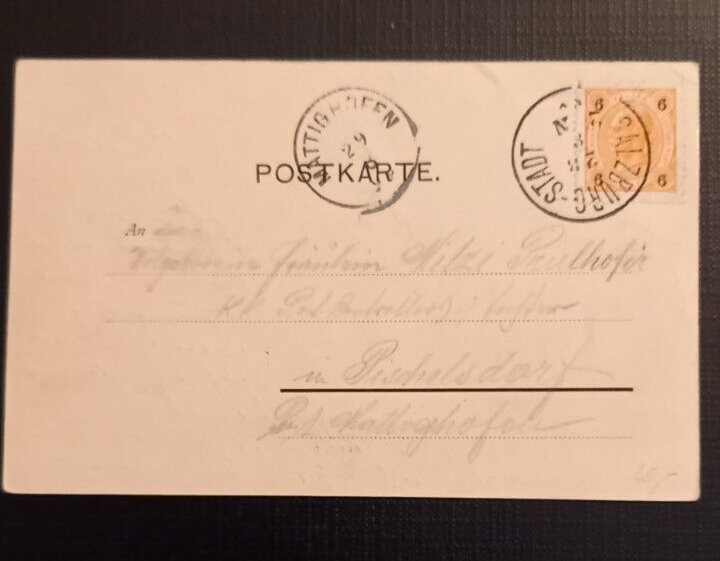 MATTIGHOFEN
29
SALZBURG-STADT
6 6
6 6
POSTKARTE.
An
Fräulein Mitzi
K.K. Post Controllers
in Pischelsdorf
Post Mattighofen
20,-